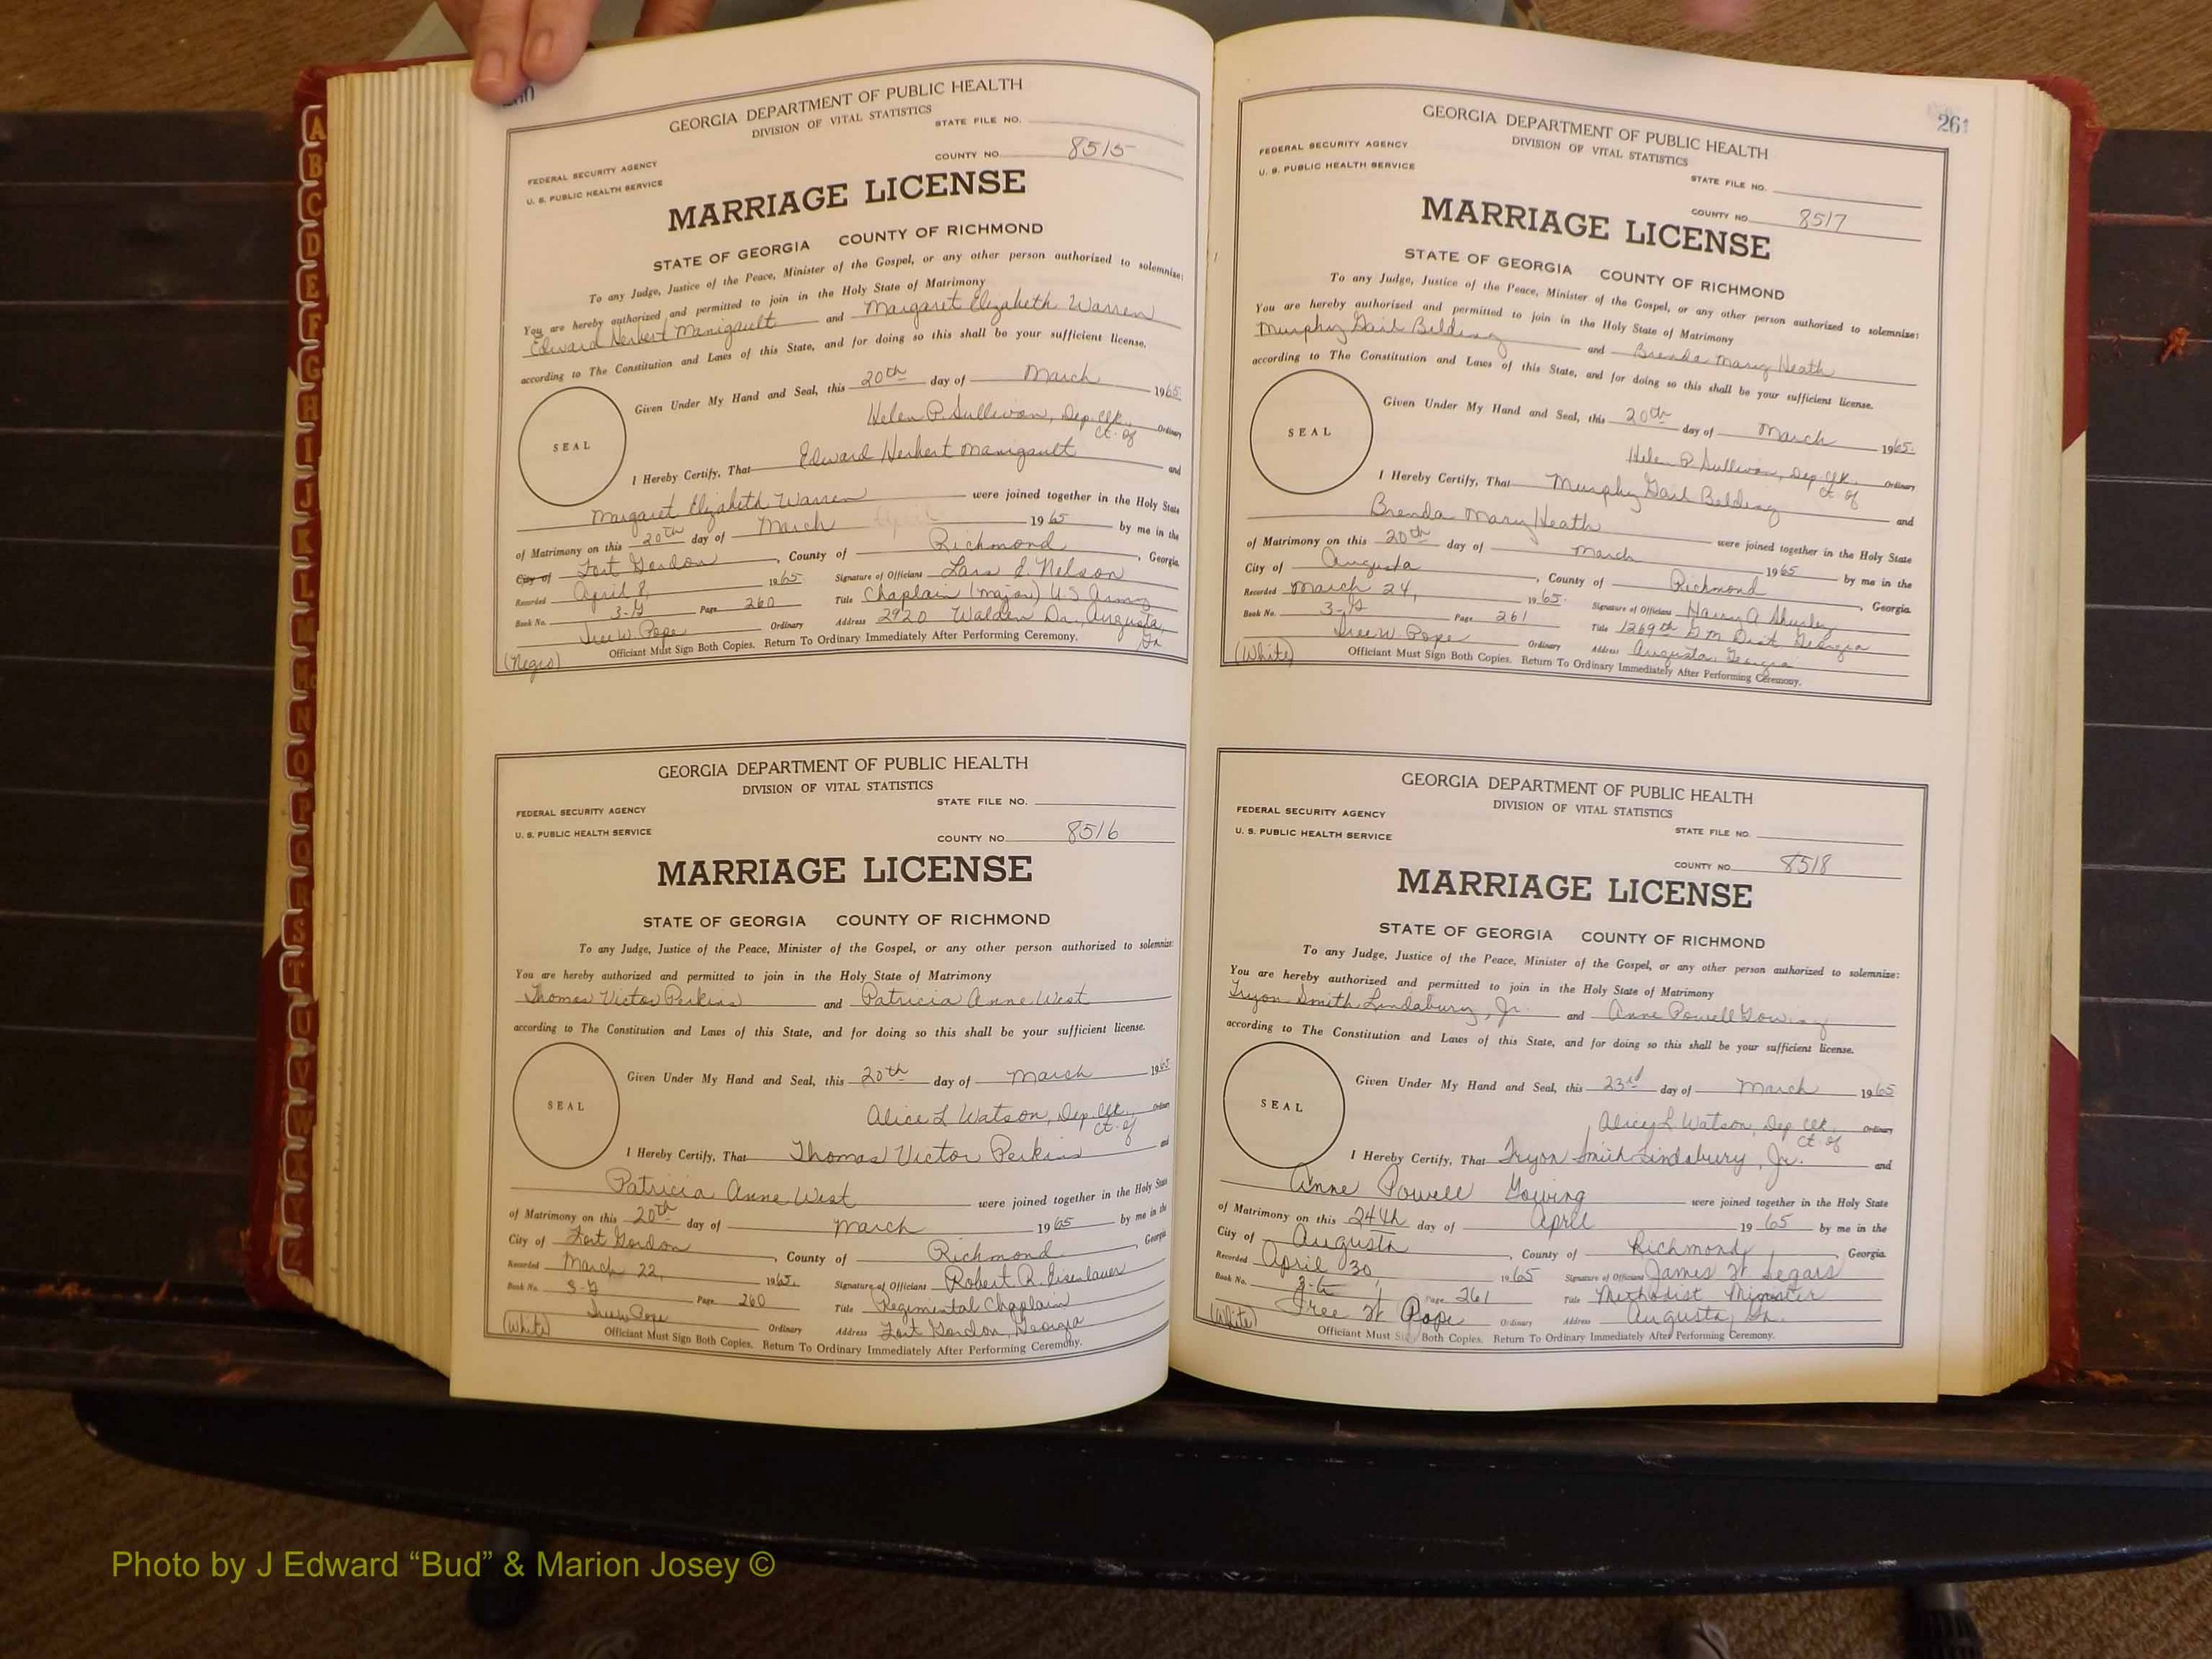 A
B
C
D
E
F
G
H
I
J
K
L
M
Mc
N
O
P
Q
R
S
T
U
V
W
GEORGIA DEPARTMENT OF PUBLIC HEALTH
DIVISION OF VITAL STATISTICS
STATE FILE NO.
FEDERAL SECURITY AGENCY
COUNTY NO. 8515
U. S. PUBLIC HEALTH SERVICE
MARRIAGE LICENSE
STATE OF GEORGIA COUNTY OF RICHMOND
To any Judge, Justice of the Peace, Minister of the Gospel, or any other person authorized to solemnize:
You are hereby authorized and permitted to join in the Holy State of Matrimony
Edward Herbert Manigault and Margaret Elizabeth Warren
according to The Constitution and Laws of this State, and for doing so this shall be your sufficient license.
SEAL
Given Under My Hand and Seal, this 20th day of March 1965
Helen P. Sullivan, Dep. Clk., Ordinary
Ct. of
I Hereby Certify, That Edward Herbert Manigault and
Margaret Elizabeth Warren were joined together in the Holy State
of Matrimony on this 20th day of March 1965 by me in the
City of Fort Gordon, County of Richmond, Georgia.
Recorded April 8, 1965 Signature of Officiant Lars L. Nelson
Book No. 3-G Page 260 Title Chaplain (Major) U.S. Army
Free W. Pope Ordinary Address 2920 Walden Dr., Augusta,
Ga
(Negro) Officiant Must Sign Both Copies. Return To Ordinary Immediately After Performing Ceremony.
GEORGIA DEPARTMENT OF PUBLIC HEALTH
DIVISION OF VITAL STATISTICS
FEDERAL SECURITY AGENCY
STATE FILE NO.
U. S. PUBLIC HEALTH SERVICE
COUNTY NO. 8516
MARRIAGE LICENSE
STATE OF GEORGIA COUNTY OF RICHMOND
To any Judge, Justice of the Peace, Minister of the Gospel, or any other person authorized to solemnize:
You are hereby authorized and permitted to join in the Holy State of Matrimony
Thomas Victor Perkins and Patricia Anne West
according to The Constitution and Laws of this State, and for doing so this shall be your sufficient license.
SEAL
Given Under My Hand and Seal, this 20th day of March 1965
Alice L Watson, Dep. Clk., Ordinary
Ct. of
I Hereby Certify, That Thomas Victor Perkins and
Patricia Anne West were joined together in the Holy State
of Matrimony on this 20th day of March 1965 by me in the
City of Fort Gordon, County of Richmond, Georgia
Recorded March 22, 1965. Signature of Officiant Robert R. Eisenlauer
Book No. 3-G Page 260 Title Regimental Chaplain
Free W. Pope Ordinary Address Fort Gordon, Georgia
(White) Officiant Must Sign Both Copies. Return To Ordinary Immediately After Performing Ceremony.
261
GEORGIA DEPARTMENT OF PUBLIC HEALTH
DIVISION OF VITAL STATISTICS
FEDERAL SECURITY AGENCY
U. S. PUBLIC HEALTH SERVICE
STATE FILE NO.
COUNTY NO. 8517
MARRIAGE LICENSE
STATE OF GEORGIA COUNTY OF RICHMOND
To any Judge, Justice of the Peace, Minister of the Gospel, or any other person authorized to solemnize:
You are hereby authorized and permitted to join in the Holy State of Matrimony
Murphy Gail Belding and Brenda Mary Heath
according to The Constitution and Laws of this State, and for doing so this shall be your sufficient license.
SEAL
Given Under My Hand and Seal, this 20th day of March 1965.
Helen P Sullivan, Dep. Clk., Ordinary
Ct. of
I Hereby Certify, That Murphy Gail Belding and
Brenda Mary Heath were joined together in the Holy State
of Matrimony on this 20th day of March 1965 by me in the
City of Augusta, County of Richmond, Georgia.
Recorded March 24, 1965. Signature of Officiant Harry A
Book No. 3-G Page 261 Title 1269th G M Dist. Georgia
Free W. Pope Ordinary Address Augusta, Georgia
(White) Officiant Must Sign Both Copies. Return To Ordinary Immediately After Performing Ceremony.
GEORGIA DEPARTMENT OF PUBLIC HEALTH
DIVISION OF VITAL STATISTICS
FEDERAL SECURITY AGENCY
U. S. PUBLIC HEALTH SERVICE
STATE FILE NO.
COUNTY NO. 8518
MARRIAGE LICENSE
STATE OF GEORGIA COUNTY OF RICHMOND
To any Judge, Justice of the Peace, Minister of the Gospel, or any other person authorized to solemnize:
You are hereby authorized and permitted to join in the Holy State of Matrimony
Tryon Smith Lindabury, Jr. and Anne Powell Gowing
according to The Constitution and Laws of this State, and for doing so this shall be your sufficient license.
SEAL
Given Under My Hand and Seal, this 23rd day of March 1965
L Watson, Dep Clk, Ordinary
Ct. of
I Hereby Certify, That Tryon Smith Lindabury, Jr. and
Anne Powell Gowing were joined together in the Holy State
of Matrimony on this 24th day of April 1965 by me in the
City of Augusta, County of Richmond, Georgia.
Recorded April 30, 1965 Signature of Officiant James W. Segars
Book No. 3-G Page 261 Title Methodist Minister
Free W Pope Ordinary Address Augusta, Ga.
(White) Officiant Must Sign Both Copies. Return To Ordinary Immediately After Performing Ceremony.
Photo by J Edward “Bud” & Marion Josey ©